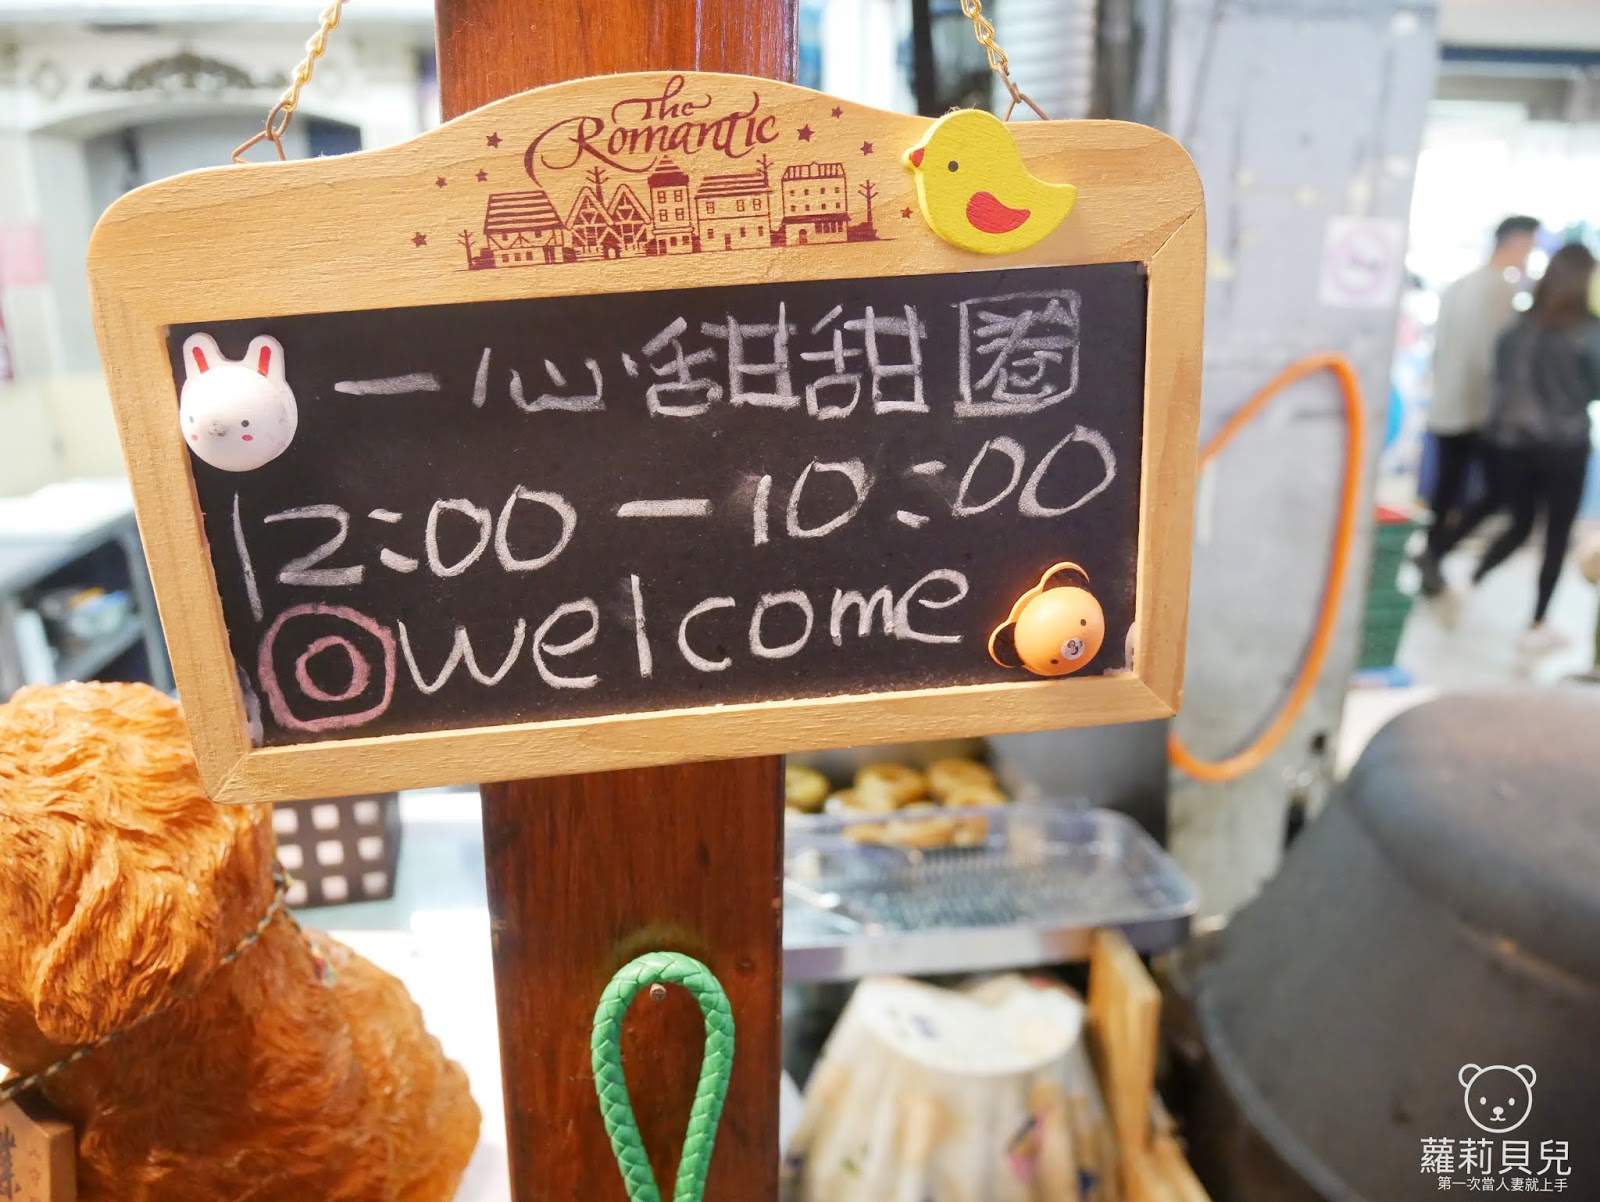 The
Romantic
一心甜甜圈
12:00－10:00
welcome
蘿莉貝兒
第一次當人妻就上手